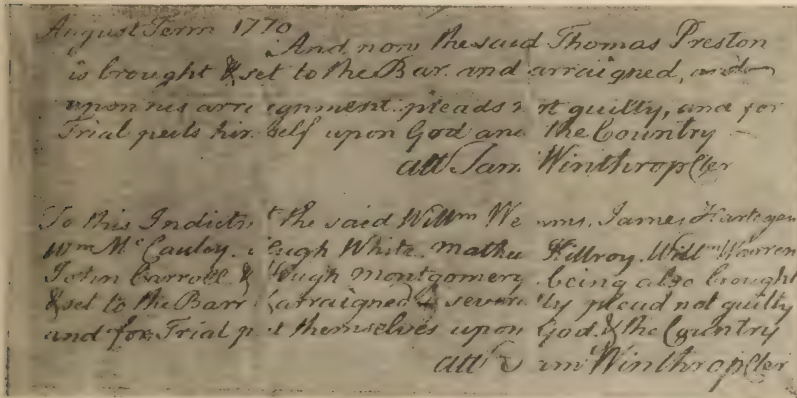 August Term 1770
And now the said Thomas Preston
is brought & set to the Bar and arraigned, and
upon his arraignment pleads not guilty, and for
Trial puts himself upon God and the Country
att Sam Winthrop Cler
To this Indictmt the said Willm Wemms, James Hartegan
Wm McCauley, Hugh White, Mathew Killroy, Willm Warren
John Carroll & Hugh Montgomery being also brought
& set to the Barr & arraigned severally plead not guilty
and for Trial put themselves upon God & the Country
att Sam Winthrop Cler